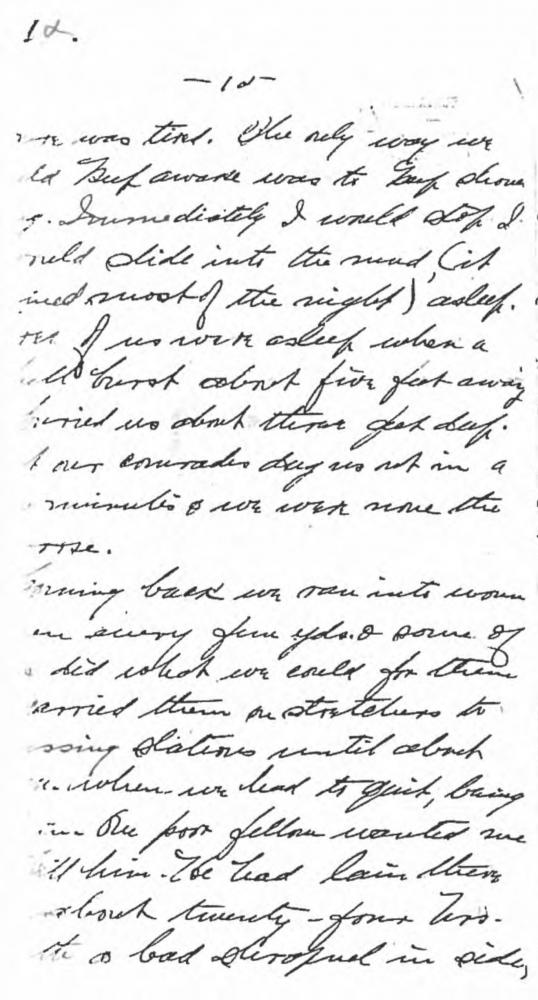 18.
-18-
was tired. The only way we
keep awake was to keep
Immediately I would stop I
slide into the mud, (it
most of the night) asleep.
of us were asleep when a
burst about five feet away
buried us about three feet deep.
our comrades dug us out in a
minutes & we were none the
coming back we ran into
every few yds. & some of
did what we could for them
carried them on stretchers to
stations until about
when we had to quit, being
One poor fellow wanted me
him. He had lain there
about twenty-four hrs.
a bad shrapnel in side,